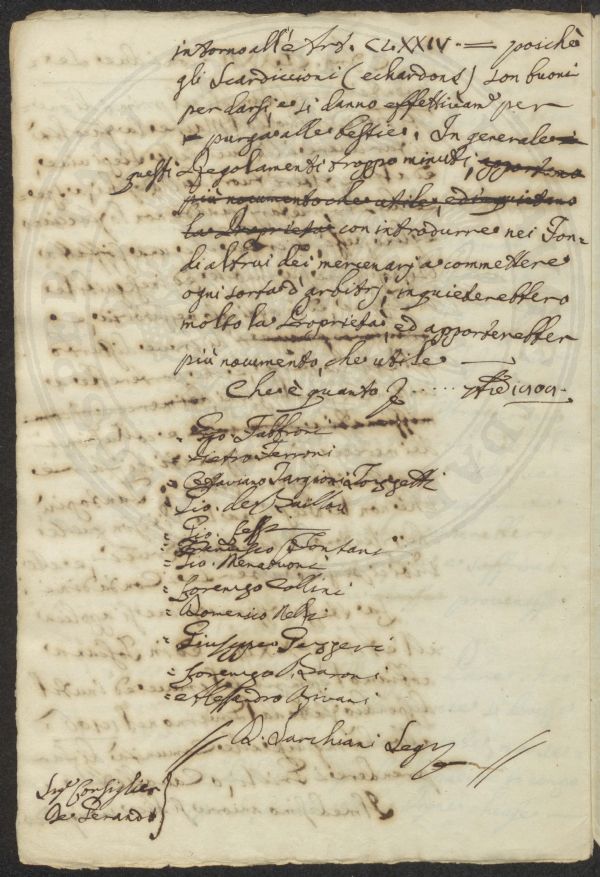 intorno all' Art. CLXXIV. = poichè
gli Scardiccioni (echardons) son buoni
per darsi, e si danno effettivam.e per
= purga alle bestie. In generale
questi Regolamenti troppo minuti, apportano
più nocumento che utile, ed inquietano
la Proprietà con introdurre nei Fon-
di altrui dei mercenarj a commettere
ogni sorta d'arbitrj, inquieterebbero
molto la Proprietà, ed apporterebber
più nocumento, che utile —
Che è quanto
= Gio. Fabbroni
= Pietro Ferroni
= Ottaviano Targioni Tozzetti
= Gio. de Baillou
= Gio.
= Francesco Fontani
= Gio. Menabuoni
= Lorenzo Collini
= Domenico
= Giuseppe Pezzeri
= Lorenzo Baroni
= Alessandro Rivani
// A. Sarchiani Seg. //
Sig. Consiglier
De Gerando